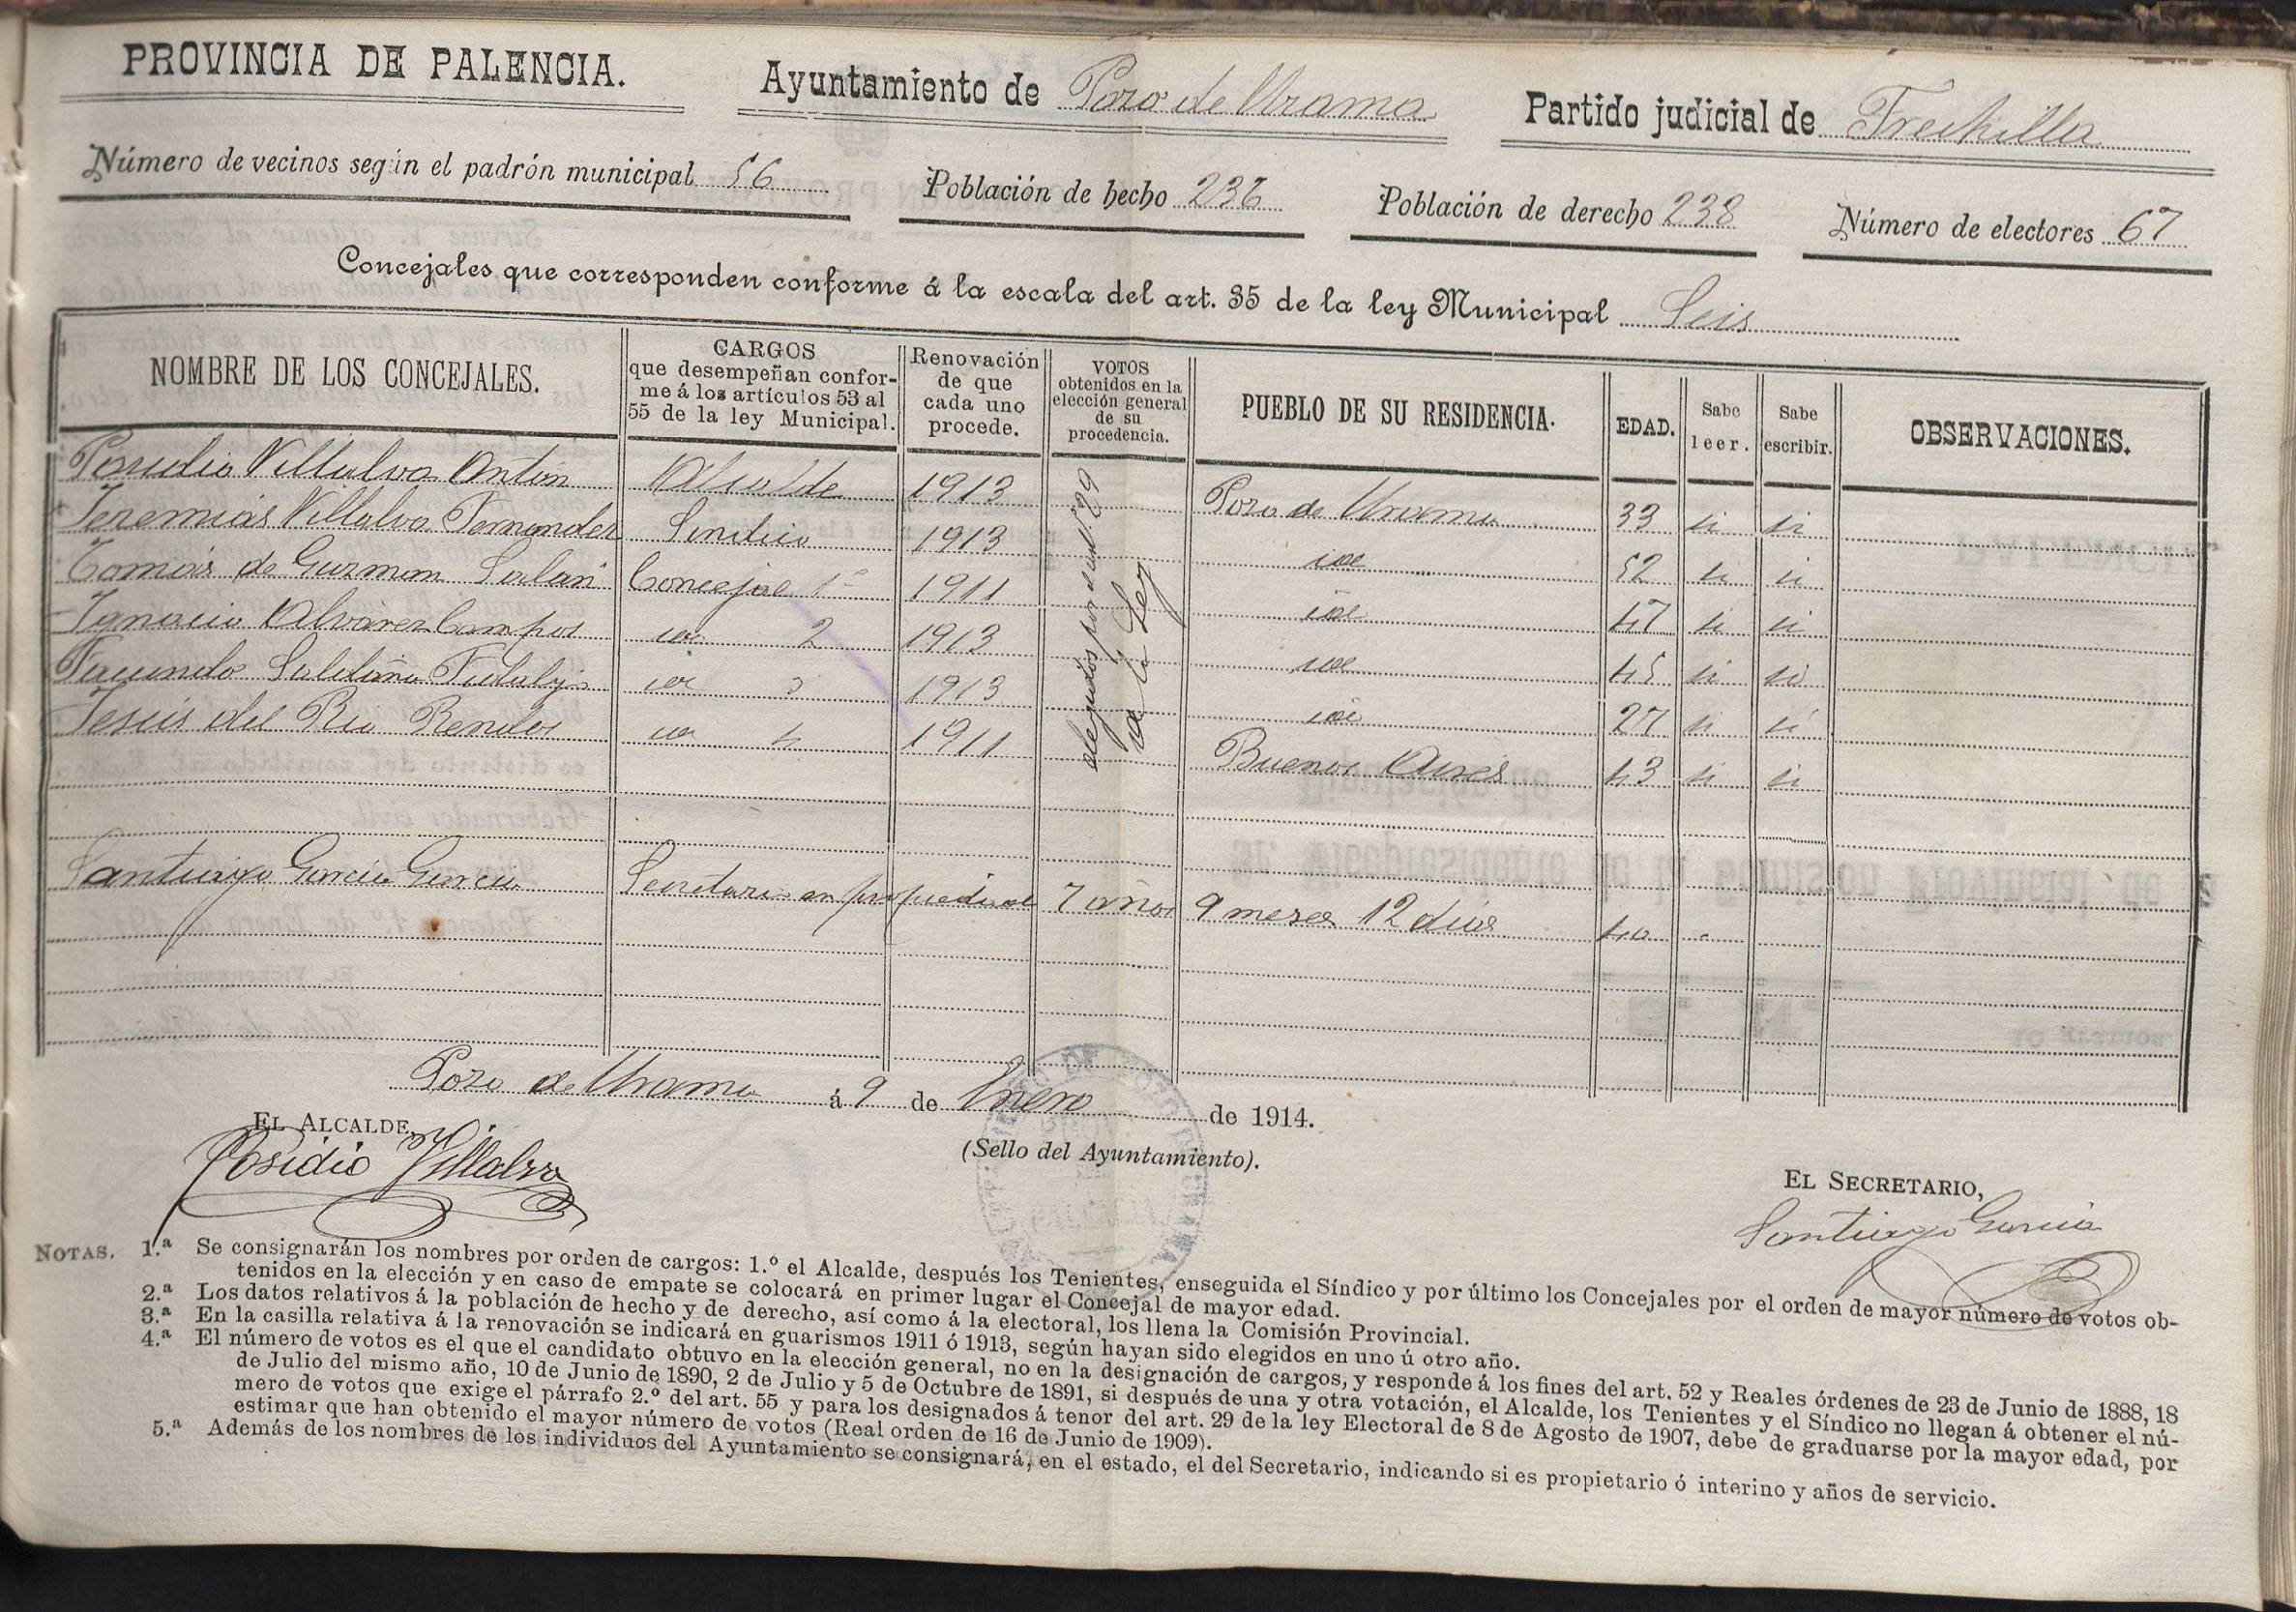 PROVINCIA DE PALENCIA.
Ayuntamiento de Pozo de Urama
Partido judicial de Frechilla
Número de vecinos según el padrón municipal 56
Población de hecho 236
Población de derecho 238
Número de electores 67
Concejales que corresponden conforme á la escala del art. 35 de la ley Municipal Seis
NOMBRE DE LOS CONCEJALES.
CARGOS
que desempeñan confor-
me á los artículos 53 al
55 de la ley Municipal.
Renovación
de que
cada uno
procede.
VOTOS
obtenidos en la
elección general
de su
procedencia.
PUEBLO DE SU RESIDENCIA.
EDAD.
Sabe
leer.
Sabe
escribir.
OBSERVACIONES.
elegidos por el art. 29
de la Ley
Posidio Villalva Antón Alcalde 1913 Pozo de Urama 33 si si
Jeremias Villalva Fernandez Sindico 1913 id 52 si si
Tomás de Guzman Salan Concejal 1º 1911 id 47 si si
Ignacio Alvarez Campos id 2 1913 id 45 si si
Facundo Saldaña id 3 1913 id 27 si si
Jesús del Rio id 4 1911 Buenos Aires 43 si si
Santiago Garcia Garcia Secretario en propiedad 7 años 9 meses 12 dias 40
Pozo de Urama á 9 de Enero de 1914.
EL ALCALDE,
Posidio Villalva
(Sello del Ayuntamiento).
EL SECRETARIO,
Santiago Garcia
NOTAS. 1.ª Se consignarán los nombres por orden de cargos: 1.º el Alcalde, después los Tenientes, enseguida el Síndico y por último los Concejales por el orden de mayor número de votos ob-
tenidos en la elección y en caso de empate se colocará en primer lugar el Concejal de mayor edad.
2.ª Los datos relativos á la población de hecho y de derecho, así como á la electoral, los llena la Comisión Provincial.
3.ª En la casilla relativa á la renovación se indicará en guarismos 1911 ó 1913, según hayan sido elegidos en uno ú otro año.
4.ª El número de votos es el que el candidato obtuvo en la elección general, no en la designación de cargos, y responde á los fines del art. 52 y Reales órdenes de 23 de Junio de 1888, 18
de Julio del mismo año, 10 de Junio de 1890, 2 de Julio y 5 de Octubre de 1891, si después de una y otra votación, el Alcalde, los Tenientes y el Síndico no llegan á obtener el nú-
mero de votos que exige el párrafo 2.º del art. 55 y para los designados á tenor del art. 29 de la ley Electoral de 8 de Agosto de 1907, debe de graduarse por la mayor edad, por
estimar que han obtenido el mayor número de votos (Real orden de 16 de Junio de 1909).
5.ª Además de los nombres de los individuos del Ayuntamiento se consignará, en el estado, el del Secretario, indicando si es propietario ó interino y años de servicio.